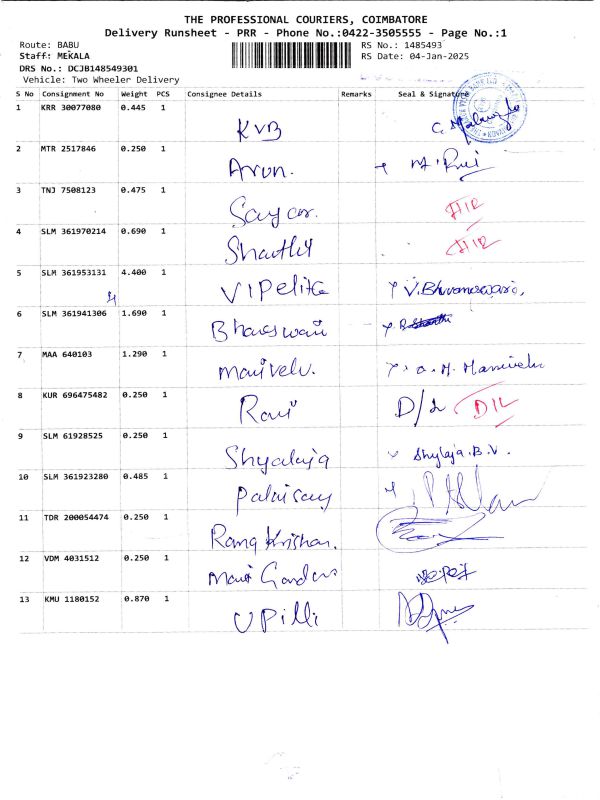 THE PROFESSIONAL COURIERS, COIMBATORE
Delivery Runsheet - PRR - Phone No.:0422-3505555 - Page No.:1
Route: BABU RS No.: 1485493
Staff: MEKALA RS Date: 04-Jan-2025
DRS No.: DCJB148549301
Vehicle: Two Wheeler Delivery
S No Consignment No Weight PCS Consignee Details Remarks Seal & Signature
1 KRR 30077080 0.445 1 KVB
2 MTR 2517846 0.250 1 Arun.
3 TNJ 7508123 0.475 1 H/R
4 SLM 361970214 0.690 1 H/R
5 SLM 361953131 4.400 1 VIPelite V.Bhuvaneswari,
6 SLM 361941306 1.690 1
7 MAA 640103 1.290 1 Manivelu.
8 KUR 696475482 0.250 1 Ravi D/L D/L
9 SLM 61928525 0.250 1 Shyalaja Shylaja.B.V.
10 SLM 361923280 0.485 1 Palnisamy
11 TDR 200054474 0.250 1 Rama Krishan.
12 VDM 4031512 0.250 1
13 KMU 1180152 0.870 1 UPilli